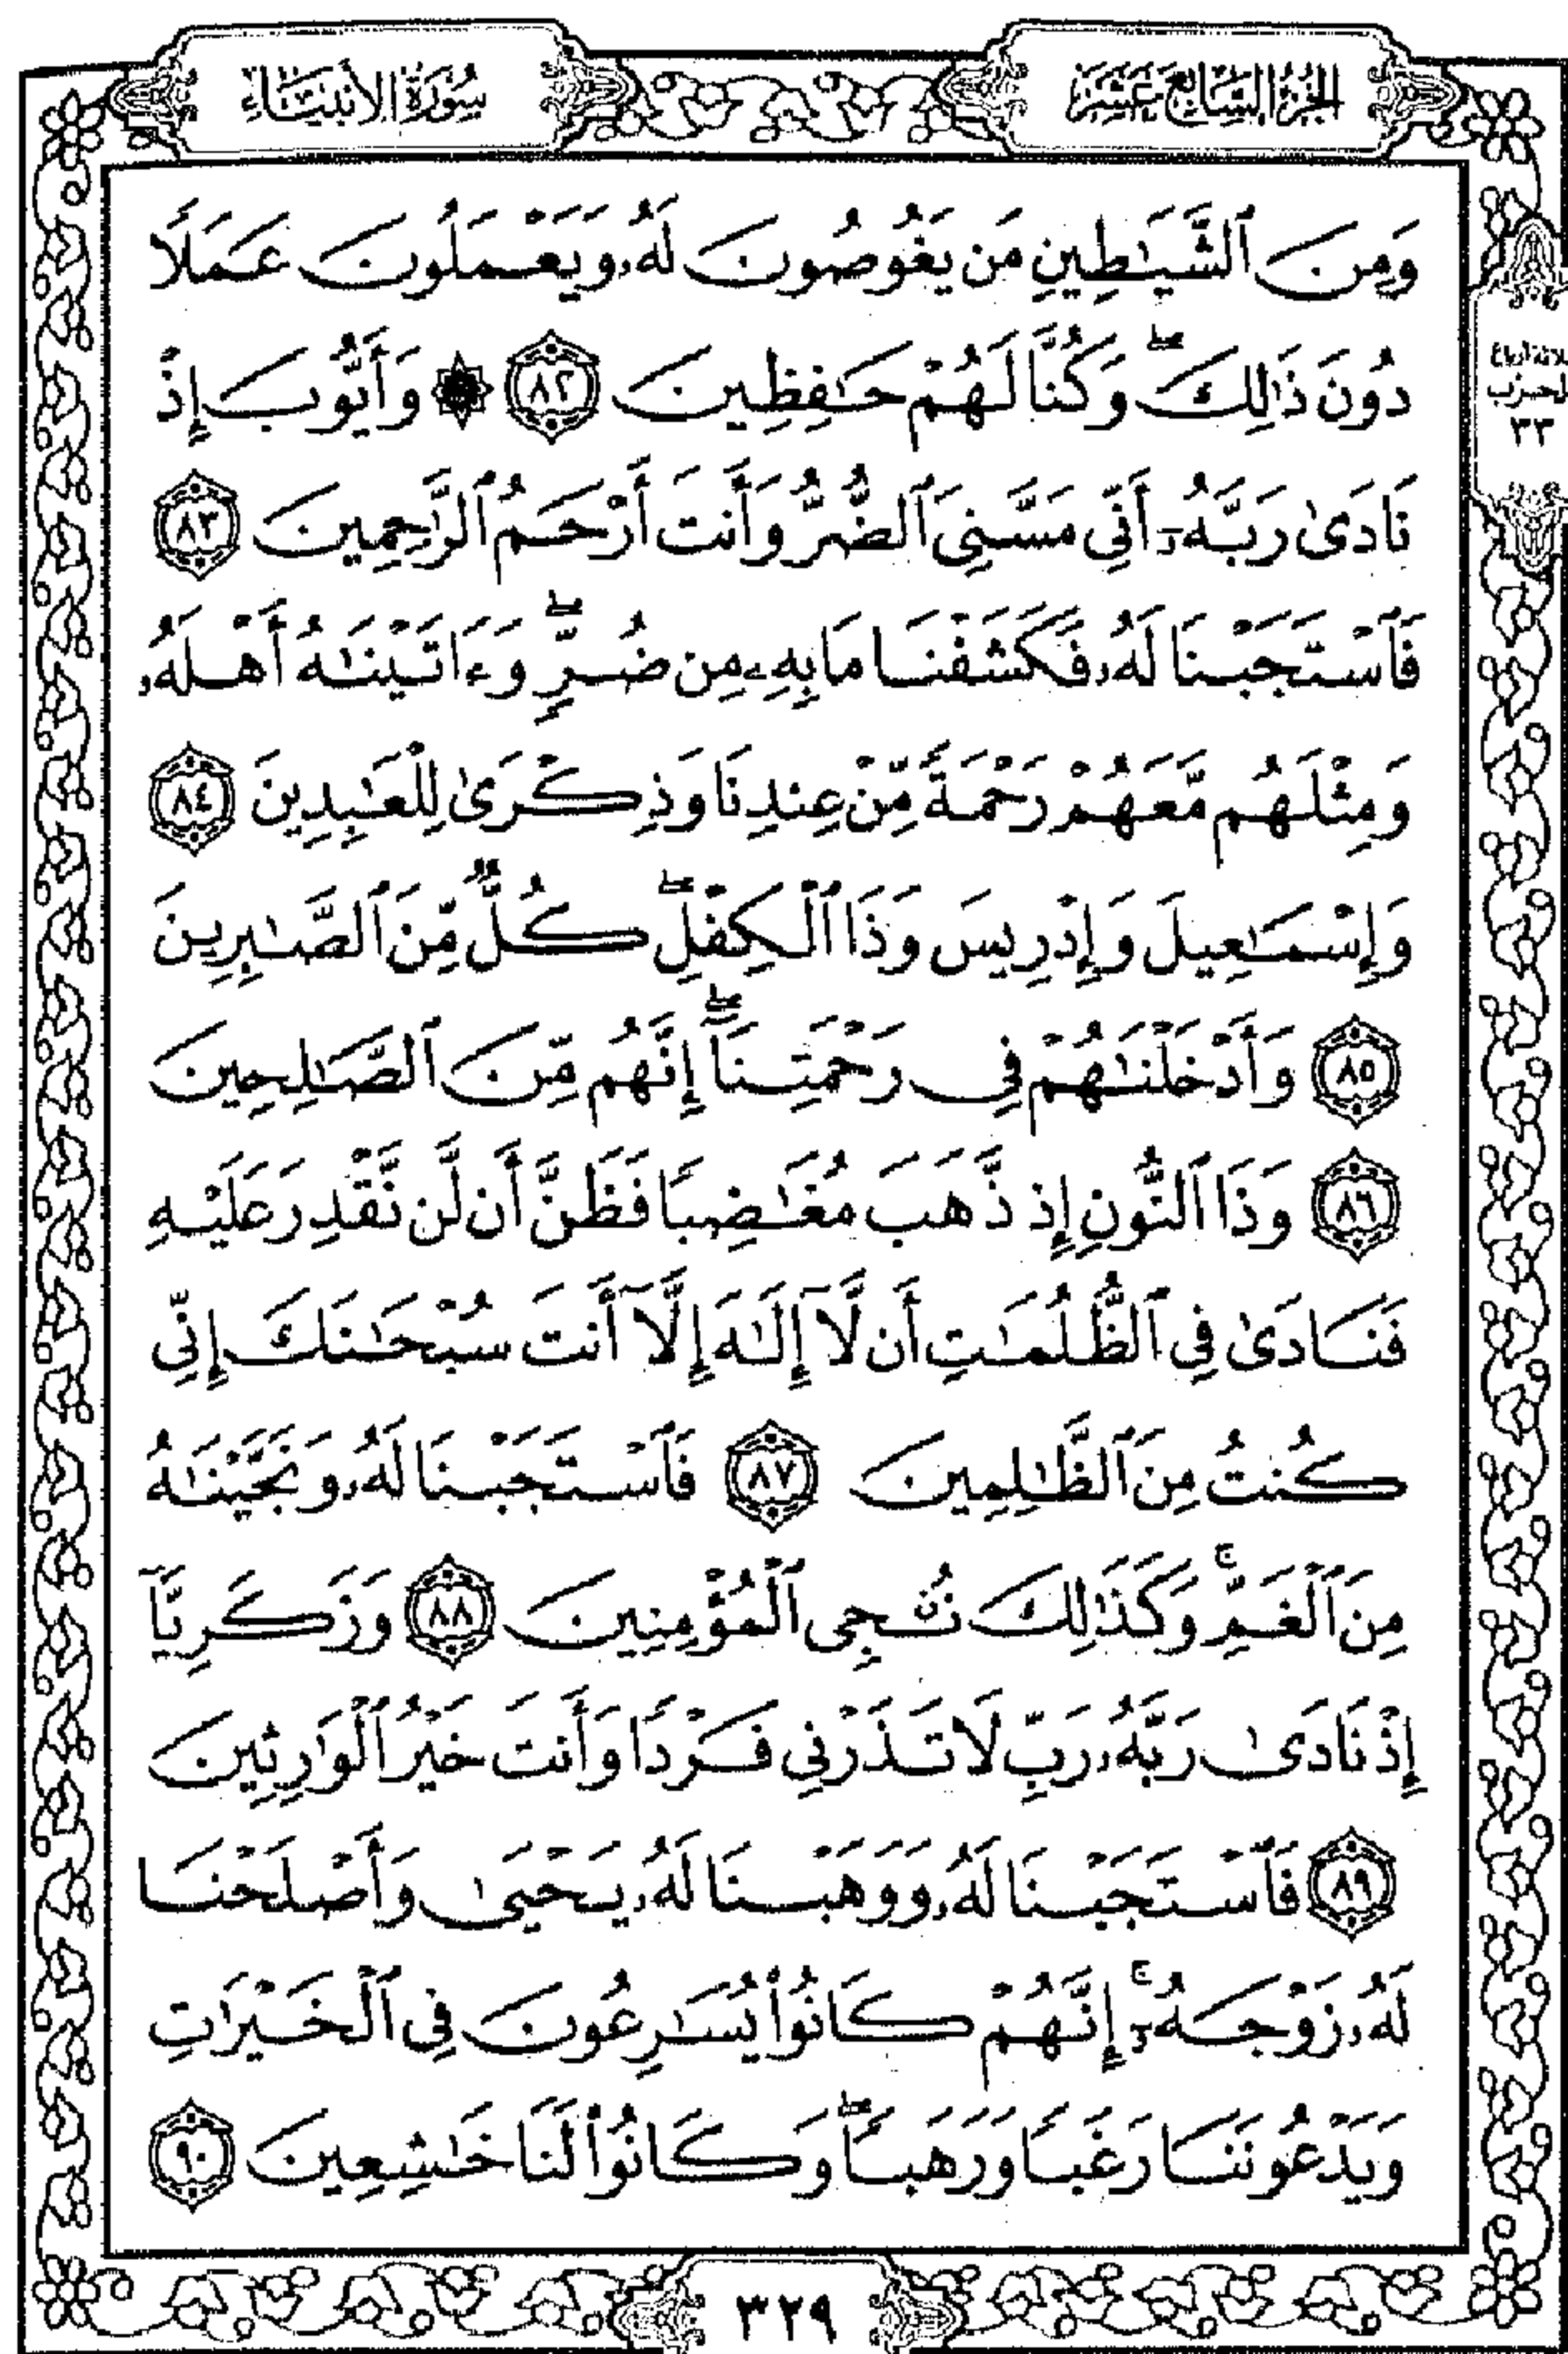 الجزء السابع عشر
سورة الأنبياء
وَمِنَ ٱلشَّيَٰطِينِ مَن يَغُوصُونَ لَهُۥ وَيَعْمَلُونَ عَمَلًا
دُونَ ذَٰلِكَ ۖ وَكُنَّا لَهُمْ حَٰفِظِينَ ٨٢ ۞ وَأَيُّوبَ إِذْ
نَادَىٰ رَبَّهُۥٓ أَنِّى مَسَّنِىَ ٱلضُّرُّ وَأَنتَ أَرْحَمُ ٱلرَّٰحِمِينَ ٨٣
فَٱسْتَجَبْنَا لَهُۥ فَكَشَفْنَا مَا بِهِۦ مِن ضُرٍّ ۖ وَءَاتَيْنَٰهُ أَهْلَهُۥ
وَمِثْلَهُم مَّعَهُمْ رَحْمَةً مِّنْ عِندِنَا وَذِكْرَىٰ لِلْعَٰبِدِينَ ٨٤
وَإِسْمَٰعِيلَ وَإِدْرِيسَ وَذَا ٱلْكِفْلِ ۖ كُلٌّ مِّنَ ٱلصَّٰبِرِينَ
٨٥ وَأَدْخَلْنَٰهُمْ فِى رَحْمَتِنَآ ۖ إِنَّهُم مِّنَ ٱلصَّٰلِحِينَ
٨٦ وَذَا ٱلنُّونِ إِذ ذَّهَبَ مُغَٰضِبًا فَظَنَّ أَن لَّن نَّقْدِرَ عَلَيْهِ
فَنَادَىٰ فِى ٱلظُّلُمَٰتِ أَن لَّآ إِلَٰهَ إِلَّآ أَنتَ سُبْحَٰنَكَ إِنِّى
كُنتُ مِنَ ٱلظَّٰلِمِينَ ٨٧ فَٱسْتَجَبْنَا لَهُۥ وَنَجَّيْنَٰهُ
مِنَ ٱلْغَمِّ ۚ وَكَذَٰلِكَ نُۨجِى ٱلْمُؤْمِنِينَ ٨٨ وَزَكَرِيَّآ
إِذْ نَادَىٰ رَبَّهُۥ رَبِّ لَا تَذَرْنِى فَرْدًا وَأَنتَ خَيْرُ ٱلْوَٰرِثِينَ
٨٩ فَٱسْتَجَبْنَا لَهُۥ وَوَهَبْنَا لَهُۥ يَحْيَىٰ وَأَصْلَحْنَا
لَهُۥ زَوْجَهُۥٓ ۚ إِنَّهُمْ كَانُوا۟ يُسَٰرِعُونَ فِى ٱلْخَيْرَٰتِ
وَيَدْعُونَنَا رَغَبًا وَرَهَبًا ۖ وَكَانُوا۟ لَنَا خَٰشِعِينَ ٩٠
٣٣
٣٢٩